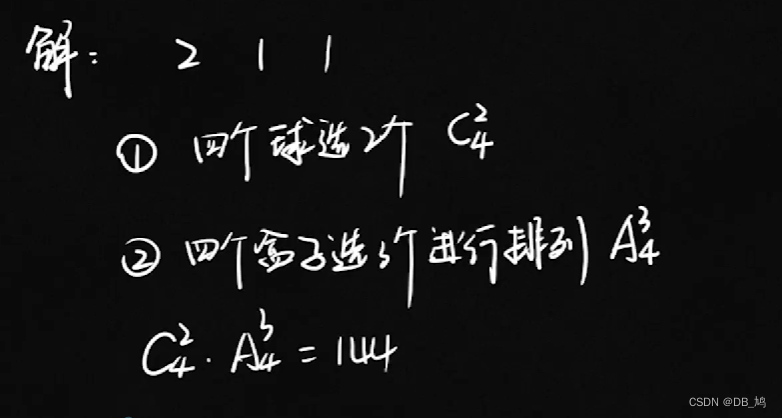 解: 2 1 1
① 四个球选2个 C₄²
② 四个盒子选3个进行排列 A₄³
C₄² · A₄³ = 144
CSDN @DB_鸠